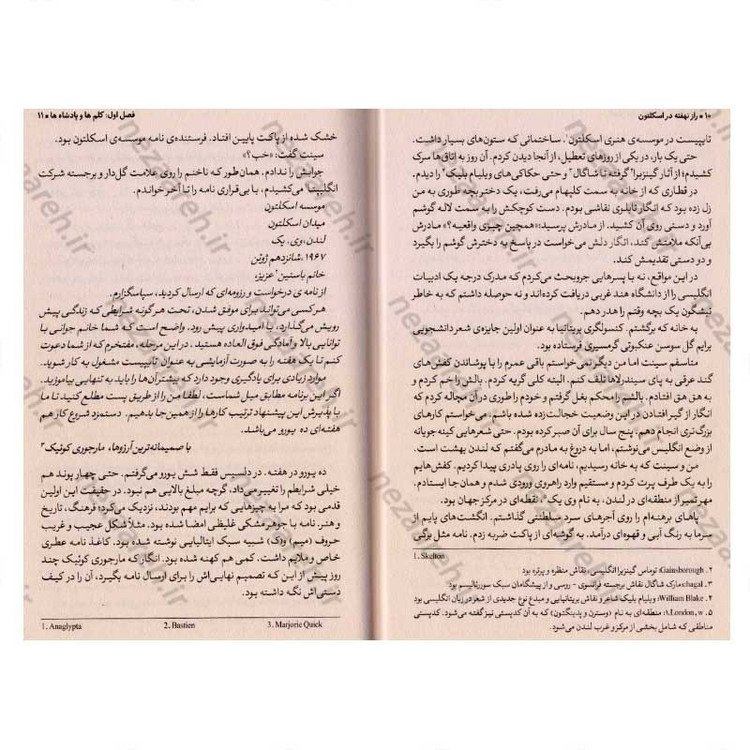 ۱۰ • راز نهفته در اسکلتون
تایپیست در موسسه‌ی هنری اسکلتون۱. ساختمانی که ستون‌های بسیار داشت.
حتی یک بار، در یکی از روزهای تعطیل، از آنجا دیدن کردم. آن روز به اتاق‌ها سرک
کشیدم؛ از آثار گینزبرا۲ گرفته تا شاگال۳ و حتی حکاکی‌های ویلیام بلیک۴ را دیدم.
در قطاری که از خانه به سمت کلپهام می‌رفت، یک دختر بچه طوری به من
زل زده بود که انگار تابلوی نقاشی بودم. دست کوچکش را به سمت لاله گوشم
آورد و دستی روی آن کشید. از مادرش پرسید: «همچین چیزی واقعیه؟» مادرش
بی‌آنکه ملامتش کند، انگار دلش می‌خواست در پاسخ به دخترش گوشم را بگیرد
و دو دستی تقدیمش کند.
در این مواقع، نه با پسرهایی جروبحث می‌کردم که مدرک درجه یک ادبیات
انگلیسی را از دانشگاه هند غربی دریافت کرده‌اند و نه حوصله داشتم که به خاطر
نیشگون یک بچه وقتم را هدر دهم.
به خانه که برگشتم. کنسولگری بریتانیا به عنوان اولین جایزه‌ی شعر دانشجویی
برایم گل سوسن عنکبوتی گرمسیری فرستاده بود.
متاسفم سینت اما من دیگر نمی‌خواستم باقی عمرم را با پوشاندن کفش‌های
گند عرقی به پای سیندرلاها تلف کنم. البته کلی گریه کردم. بالش را خم کردم و
به هق هق افتادم. بالشم را محکم بغل گرفتم و خودم را طوری در آن مچاله کردم که
انگار از گیر افتادن در این وضعیت خجالت‌زده شده باشم. می‌خواستم کارهای
بزرگ‌تری انجام دهم. پنج سال برای آن صبر کرده بودم. حتی شعرهایی کینه‌جویانه
از وضع انگلیس می‌نوشتم، اما به دروغ به مادرم می‌گفتم که لندن بهشت است.
من و سینت که به خانه رسیدیم، نامه‌ای را روی پادری پیدا کردیم. کفش‌هایم
را به یک طرف پرت کردم و مستقیم وارد راهروی ورودی شدم و همان‌جا ایستادم.
مهر تمبر از منطقه‌ای در لندن، به نام وی یک۵، نقطه‌ای در مرکز جهان بود.
پاهای برهنه‌ام را روی آجرهای سرد سلطنتی گذاشتم. انگشت‌های پایم از
سرما به رنگ آبی و قهوه‌ای درآمد. به گوشه‌ای از پاکت ضربه زدم. نامه مثل برگی
1. Skelton
۲. Gainsborough: توماس گینزبرا انگلیسی، نقاش منظره و پرتره بود
۳. chagal: مارک شاگال نقاش برجسته فرانسوی - روسی و از پیشگامان سبک سورئالیسم بود
۴. William Blake: ویلیام بلیک شاعر و نقاش بریتانیایی و مبدع نوع جدیدی از شعر در زبان انگلیسی بود
۵. London, w۱: منطقه‌ای به نام (وسترن و پدینگتون) که به آن کدپستی نیز گفته می‌شود. کدپستی
مناطقی که شامل بخشی از مرکز و غرب لندن می‌شود.
فصل اول: کلم ها و پادشاه ها • ۱۱
خشک شده از پاکت پایین افتاد. فرستنده‌ی نامه موسسه‌ی اسکلتون بود.
سینت گفت: «خب؟»
جوابش را ندادم. همان‌طور که ناخنم را روی علامت گل‌دار و برجسته شرکت
انگلیپتا۱ می‌کشیدم، با بی‌قراری نامه را تا آخر خواندم.
موسسه اسکلتون
میدان اسکلتون
لندن، وی. یک
۱۹۶۷، شانزدهم ژوئن
خانم باستین۲ عزیز؛
از نامه ی درخواست و رزومه‌ای که ارسال کردید، سپاسگزارم.
هر کسی می‌تواند برای موفق شدن، تحت هر گونه شرایطی که زندگی پیش
رویش می‌گذارد، با امیدواری پیش رود. واضح است که شما خانم جوانی با
توانایی بالا و آمادگی فوق العاده هستید. در این مرحله، مفتخرم که از شما دعوت
کنم تا یک هفته را به صورت آزمایشی به عنوان تایپیست مشغول به کار شوید.
موارد زیادی برای یادگیری وجود دارد که بیشتر آن‌ها را باید به تنهایی بیاموزید.
اگر این برنامه مطابق میل شماست، لطفا من را از طریق پست مطلع کنید تا ما
با پذیرش این پیشنهاد ترتیب کارها را از همین‌جا بدهیم. دستمزد شروع کار هم
هفته‌ای ده یورو می‌باشد.
با صمیمانه‌ترین آرزوها، مارجوری کوئیک۳
ده یورو در هفته. در دلسیس فقط شش یورو می‌گرفتم. حتی چهار پوند هم
خیلی شرایطم را تغییر می‌داد. گرچه مبلغ بالایی هم نبود. در حقیقت این اولین
قدمی بود که مرا به چیزهایی که برایم مهم بودند، نزدیک می‌کرد؛ فرهنگ، تاریخ
و هنر. نامه با جوهر مشکی غلیظی امضا شده بود. مثلاً شکل عجیب و غریب
حروف (میم) و(ک) شبیه سبک ایتالیایی نوشته شده بود. کاغذ نامه عطری
خاص و ملایم داشت. کمی هم کهنه شده بود. انگار که مارجوری کوئیک چند
روز پیش از این که تصمیم نهایی‌اش را برای ارسال نامه بگیرد، آن را در کیف
دستی‌اش نگه داشته بود.
1. Anaglypta 2. Bastien 3. Marjorie Quick
nezaareh.ir